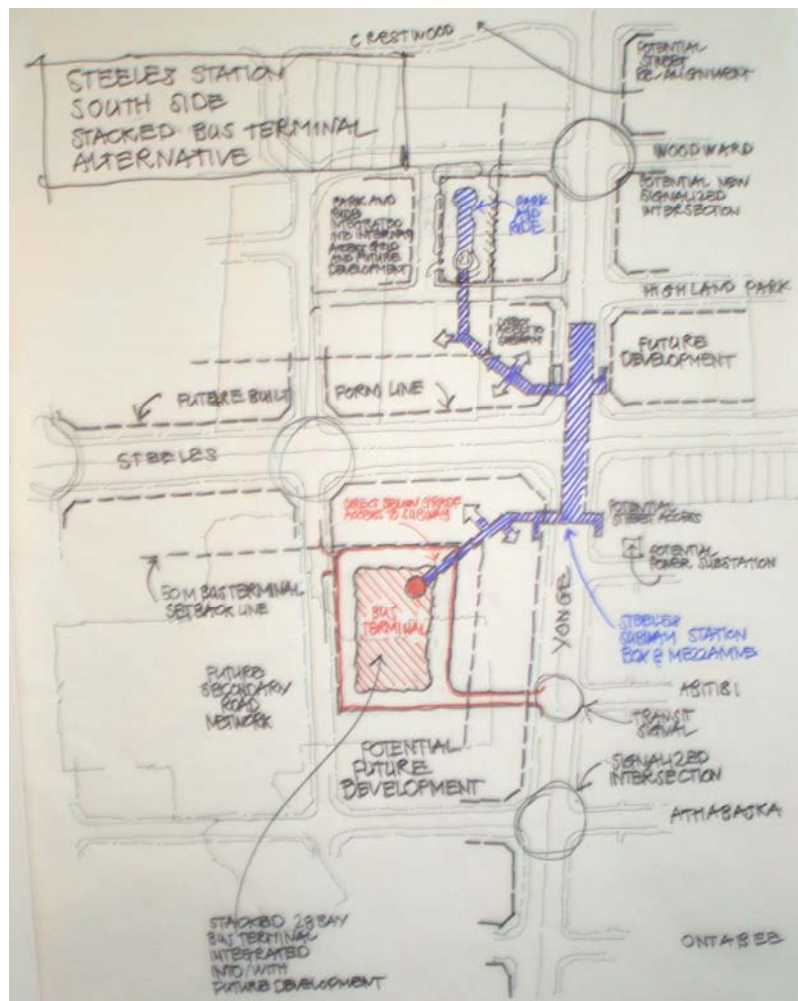 CRESTWOOD
STEELES STATION
SOUTH SIDE
STACKED BUS TERMINAL
ALTERNATIVE
POTENTIAL
STREET
RE-ALIGNMENT
WOODWARD
POTENTIAL NEW
SIGNALIZED
INTERSECTION
PARK AND
RIDE
INTEGRATED
INTO INTERNAL
ACCESS GRID
AND FUTURE
DEVELOPMENT
PARK
AND
RIDE
HIGHLAND PARK
DIRECT
ACCESS TO
SUBWAY
FUTURE
DEVELOPMENT
FUTURE BUILT
FORM LINE
STEELES
DIRECT BELOW GRADE
ACCESS TO SUBWAY
POTENTIAL
STREET ACCESS
POTENTIAL
POWER SUBSTATION
50 M BUS TERMINAL
SETBACK LINE
BUS
TERMINAL
YONGE
STEELES
SUBWAY STATION
BOX & MEZZANINE
FUTURE
SECONDARY
ROAD
NETWORK
ABITIBI
TRANSIT
SIGNAL
POTENTIAL
FUTURE
DEVELOPMENT
SIGNALIZED
INTERSECTION
ATHABASKA
STACKED 28 BAY
BUS TERMINAL
INTEGRATED
INTO/WITH
FUTURE DEVELOPMENT
ONTABEE